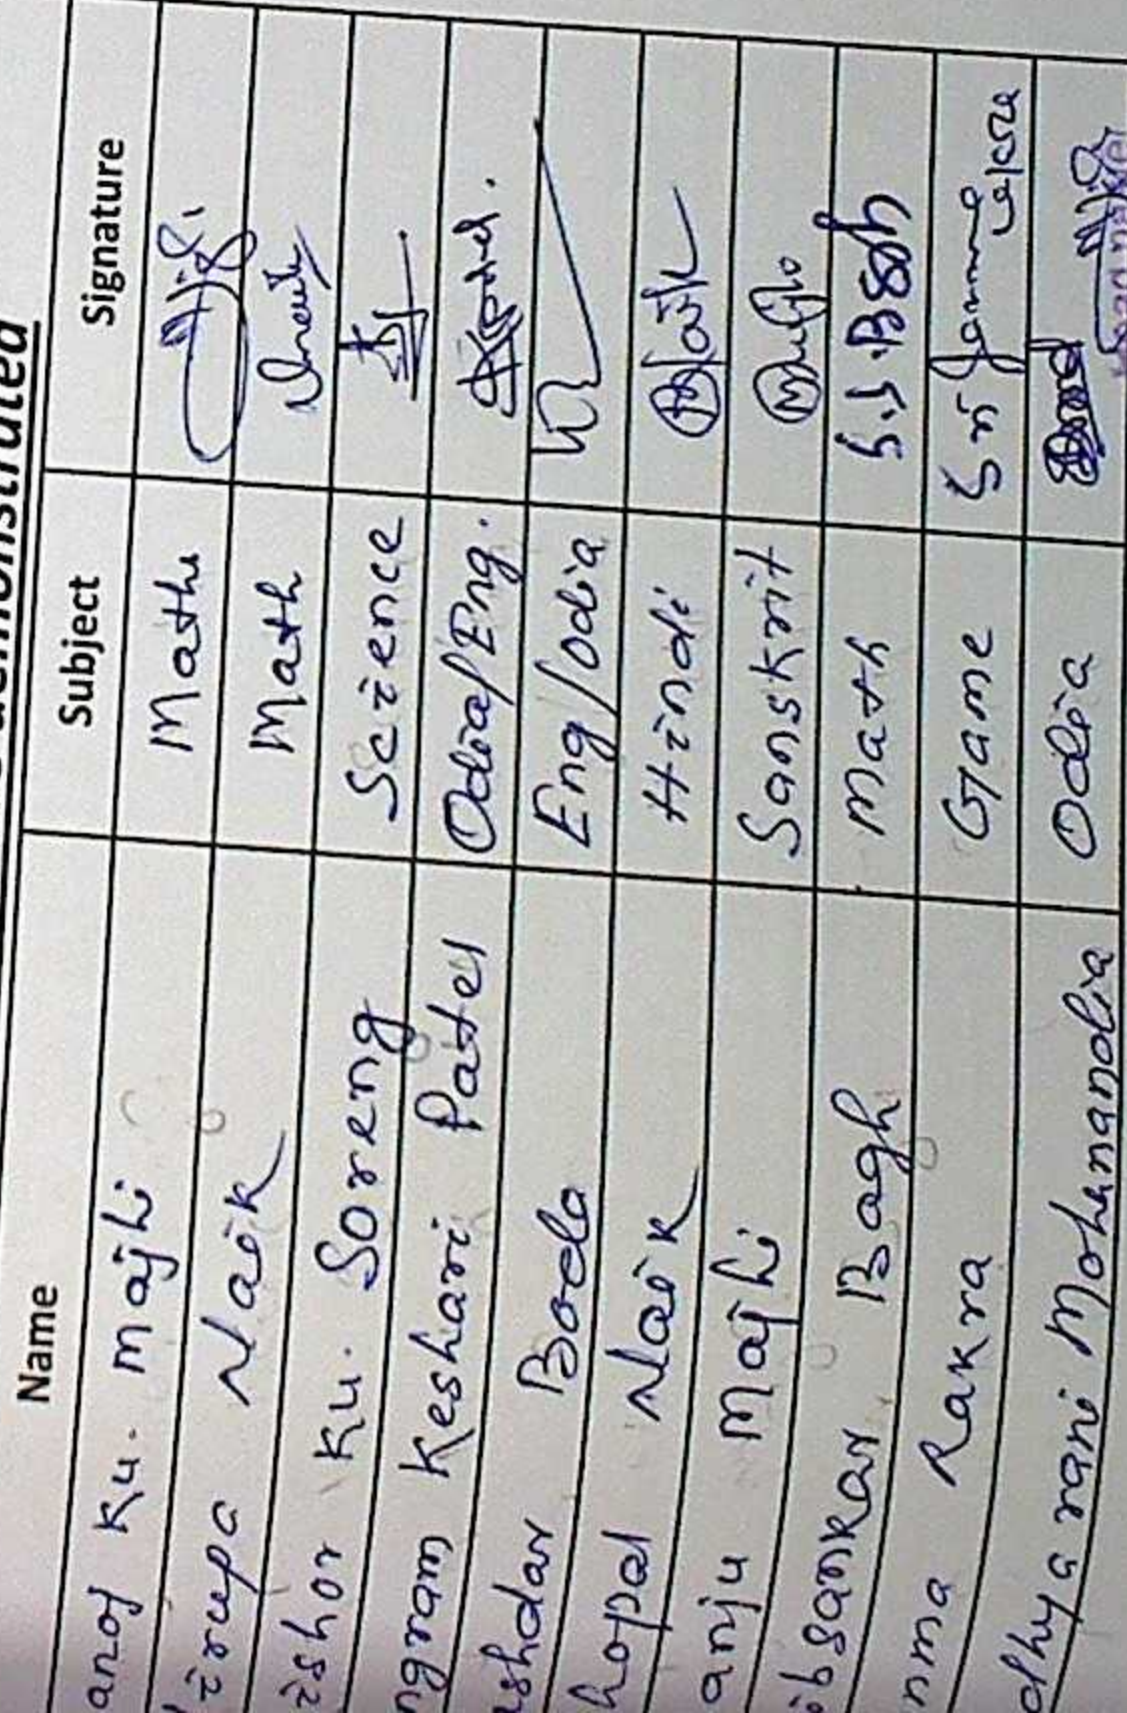 Name Subject Signature
anoj Ku. Majhi Math
irupa Naik Math
ishor Ku. Soreng Science
ngram Keshari Patel Odia/Eng.
ushdar Boda Eng/Odia
hopal Naik Hindi Naik
anju Majhi Sanskrit
ibsankar Bagh Math S.S.Bagh
nma Rakra Game
dhya rani Mohanandia Odia